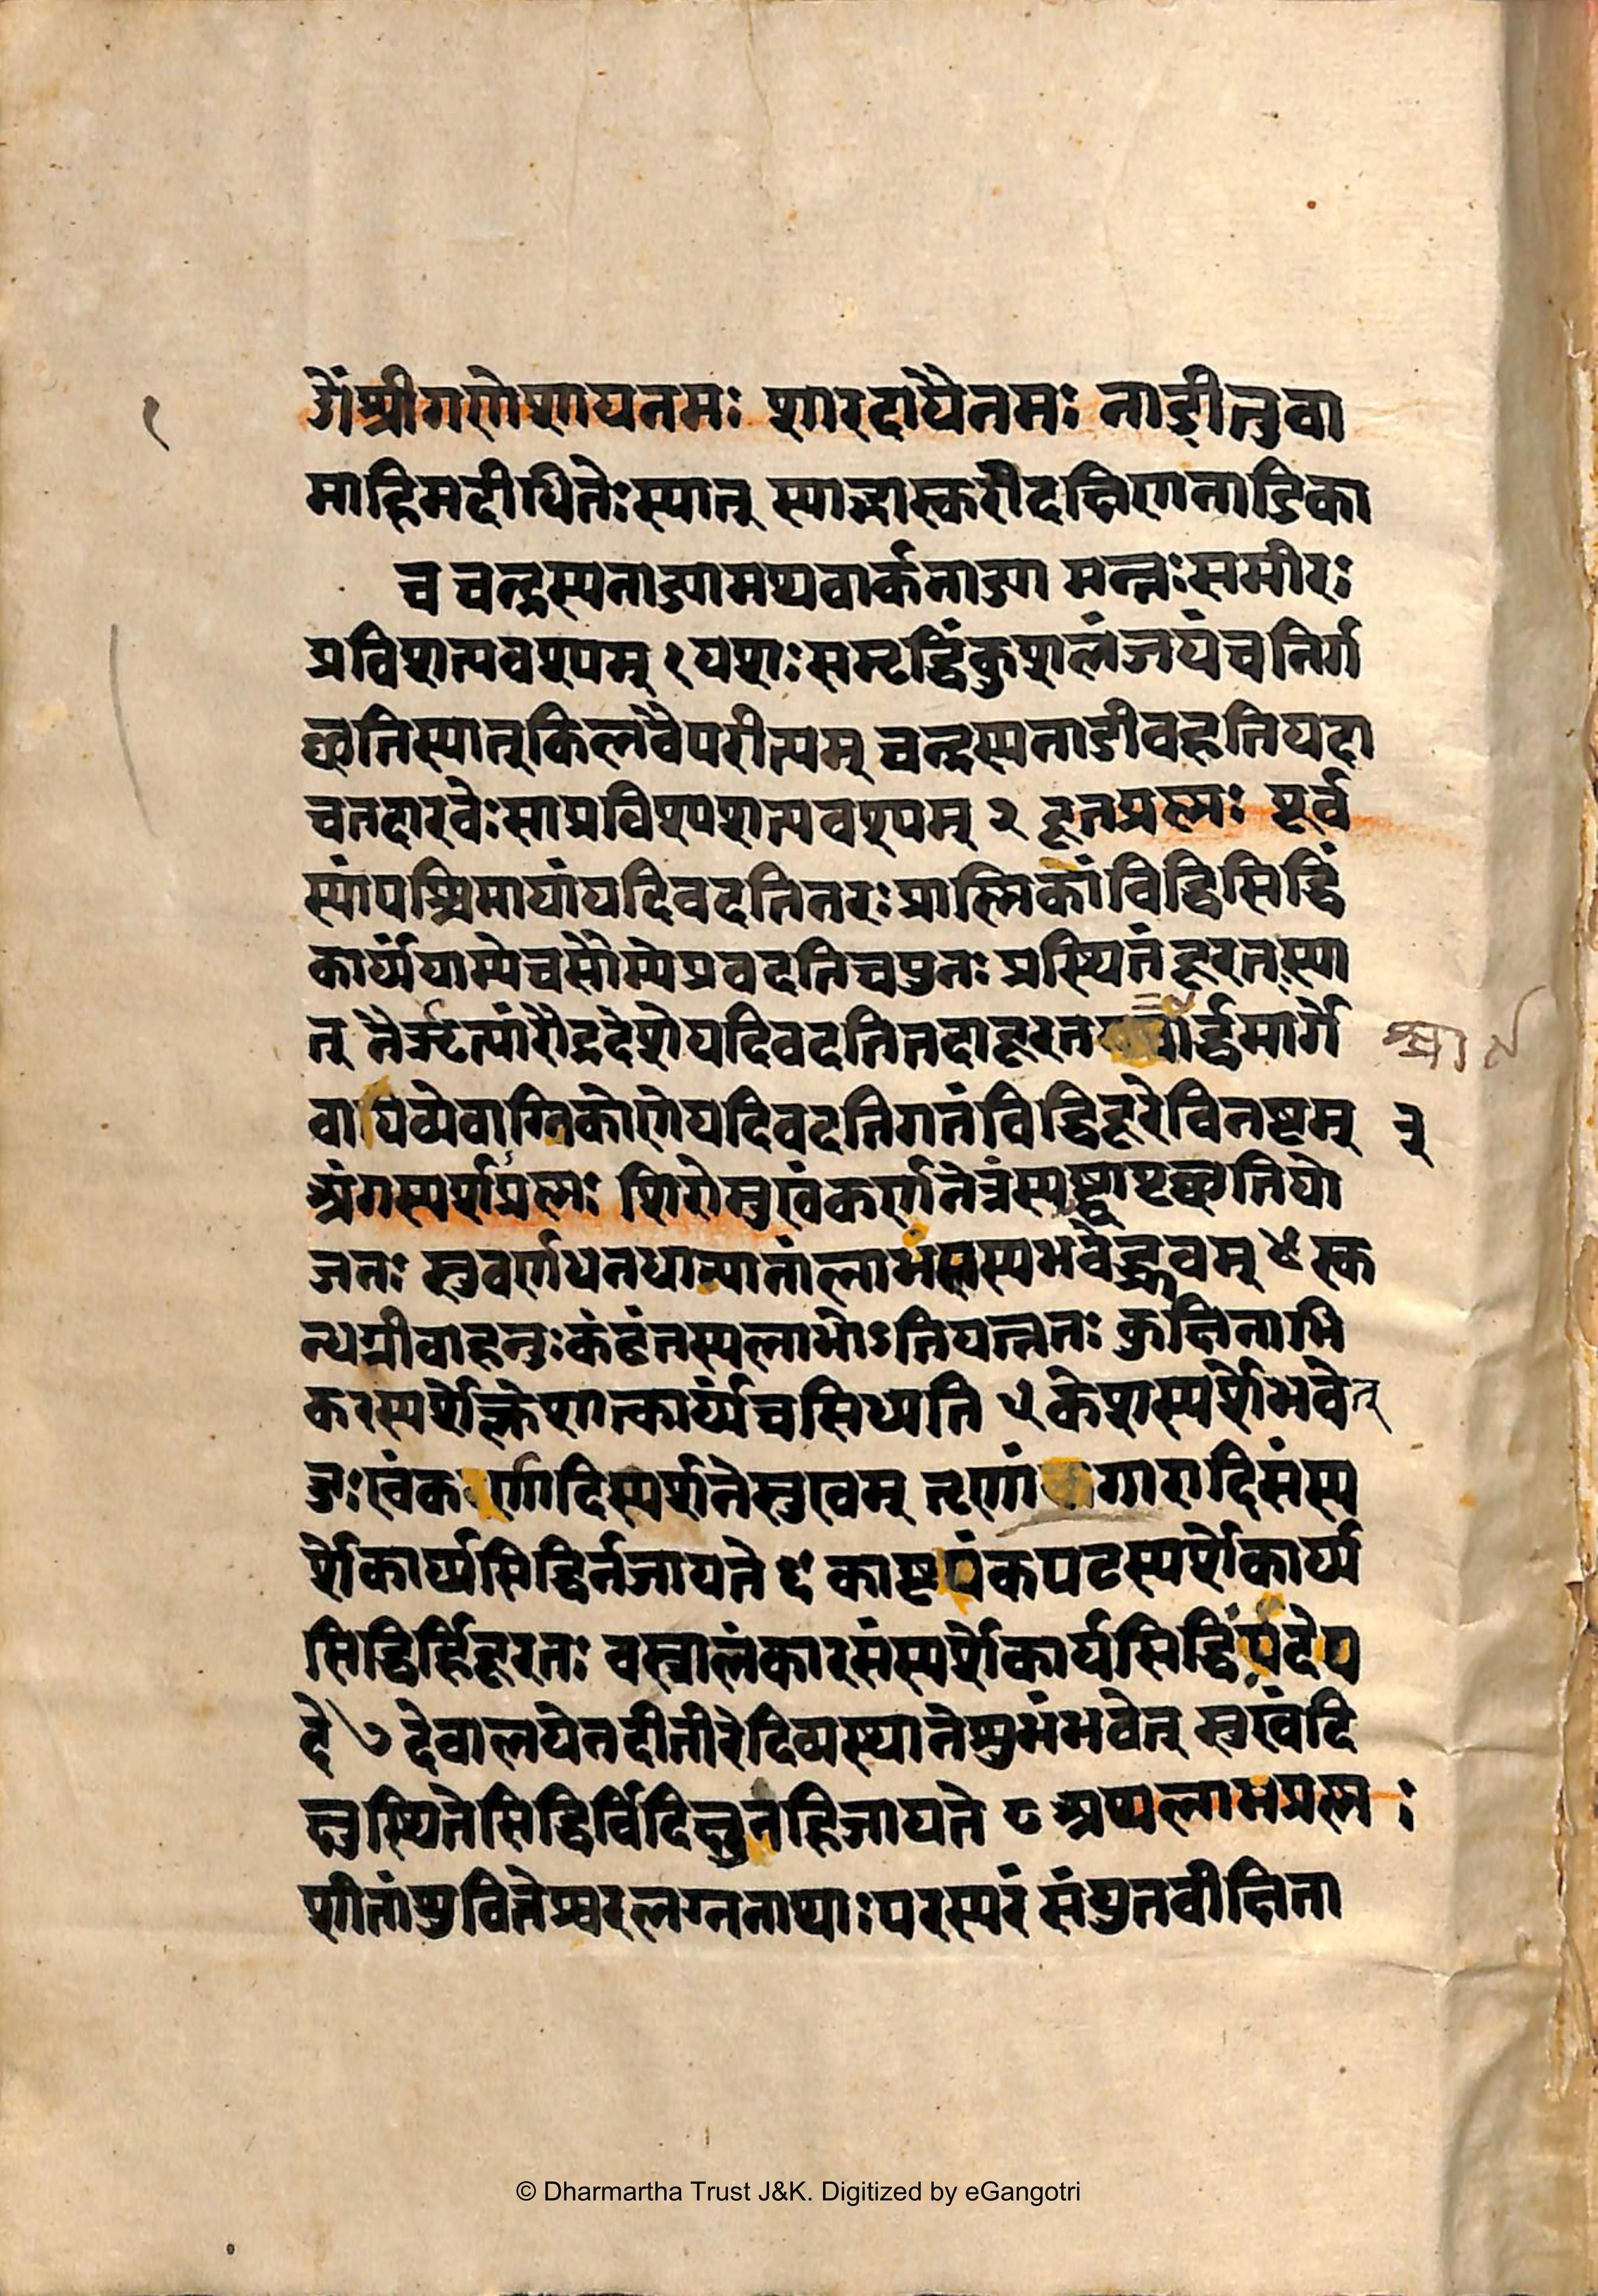 १
ॐश्रीगणेशायनमः शारदायैनमः नाडीतुवा
माहिमदीधितेःस्यात् स्याद्भास्करीदक्षिणनाडिका
च चन्द्रस्यनाड्यामथवार्कनाड्या मन्तःसमीरः
प्रविशत्यवश्यम् १ यशःसमृद्धिंकुशलंजयंचनिर्ग
च्छतिस्यात्किलवैपरीत्यम् चन्द्रस्यनाडीवहतियदा
चतदारवेःसाप्रविश्यशत्यवश्यम् २ दूतप्रश्नः पूर्व
स्यांपश्चिमायांयदिवदतिनरःप्राश्निकोविद्धिसिद्धिं
कार्य्यंयाम्येचसौम्येप्रवदतिचपुनः प्रस्थितंदूरतस्या
त् नैरृत्यांरौद्रदेशेयदिवदतितदादूरत र्द्धमार्गे
वायव्येवाग्निकोणेयदिवदतिगतंविद्धिदूरेविनष्टम् ३
अंगस्पर्शप्रश्नः शिरोमुखंकर्णनेत्रंस्पृष्ट्वापृच्छतियो
जनः सुवर्णधनधान्यानांलाभंतस्यभवेद्ध्रुवम् ४ स्क
न्धग्रीवाहनुःकंठंतस्यलाभोऽतियत्नतः कुक्षिनाभि
करस्पर्शेत्क्लेशात्कार्य्यंचसिध्यति ५ केशस्पर्शेभवेत्
दुःखंकर्णादिस्पर्शनेसुखम् तृणांगारादिसंस्प
र्शेकार्य्यसिद्धिर्नजायते ६ काष्टपंकपटस्पर्शेकार्य्य
सिद्धिर्हिदूरतः वस्त्रालंकारसंस्पर्शेकार्यसिद्धिंपदेप
दे ७ देवालयेनदीतीरेदिव्यस्थानेशुभंभवेत् सुखंदि
क्षुस्थितेसिद्धिर्विदिक्षुनहिजायते ८ अथलाभप्रश्नः
शीतांशुवित्तेश्वरलग्ननाथाःपरस्परं संयुतवीक्षिता
© Dharmartha Trust J&K. Digitized by eGangotri